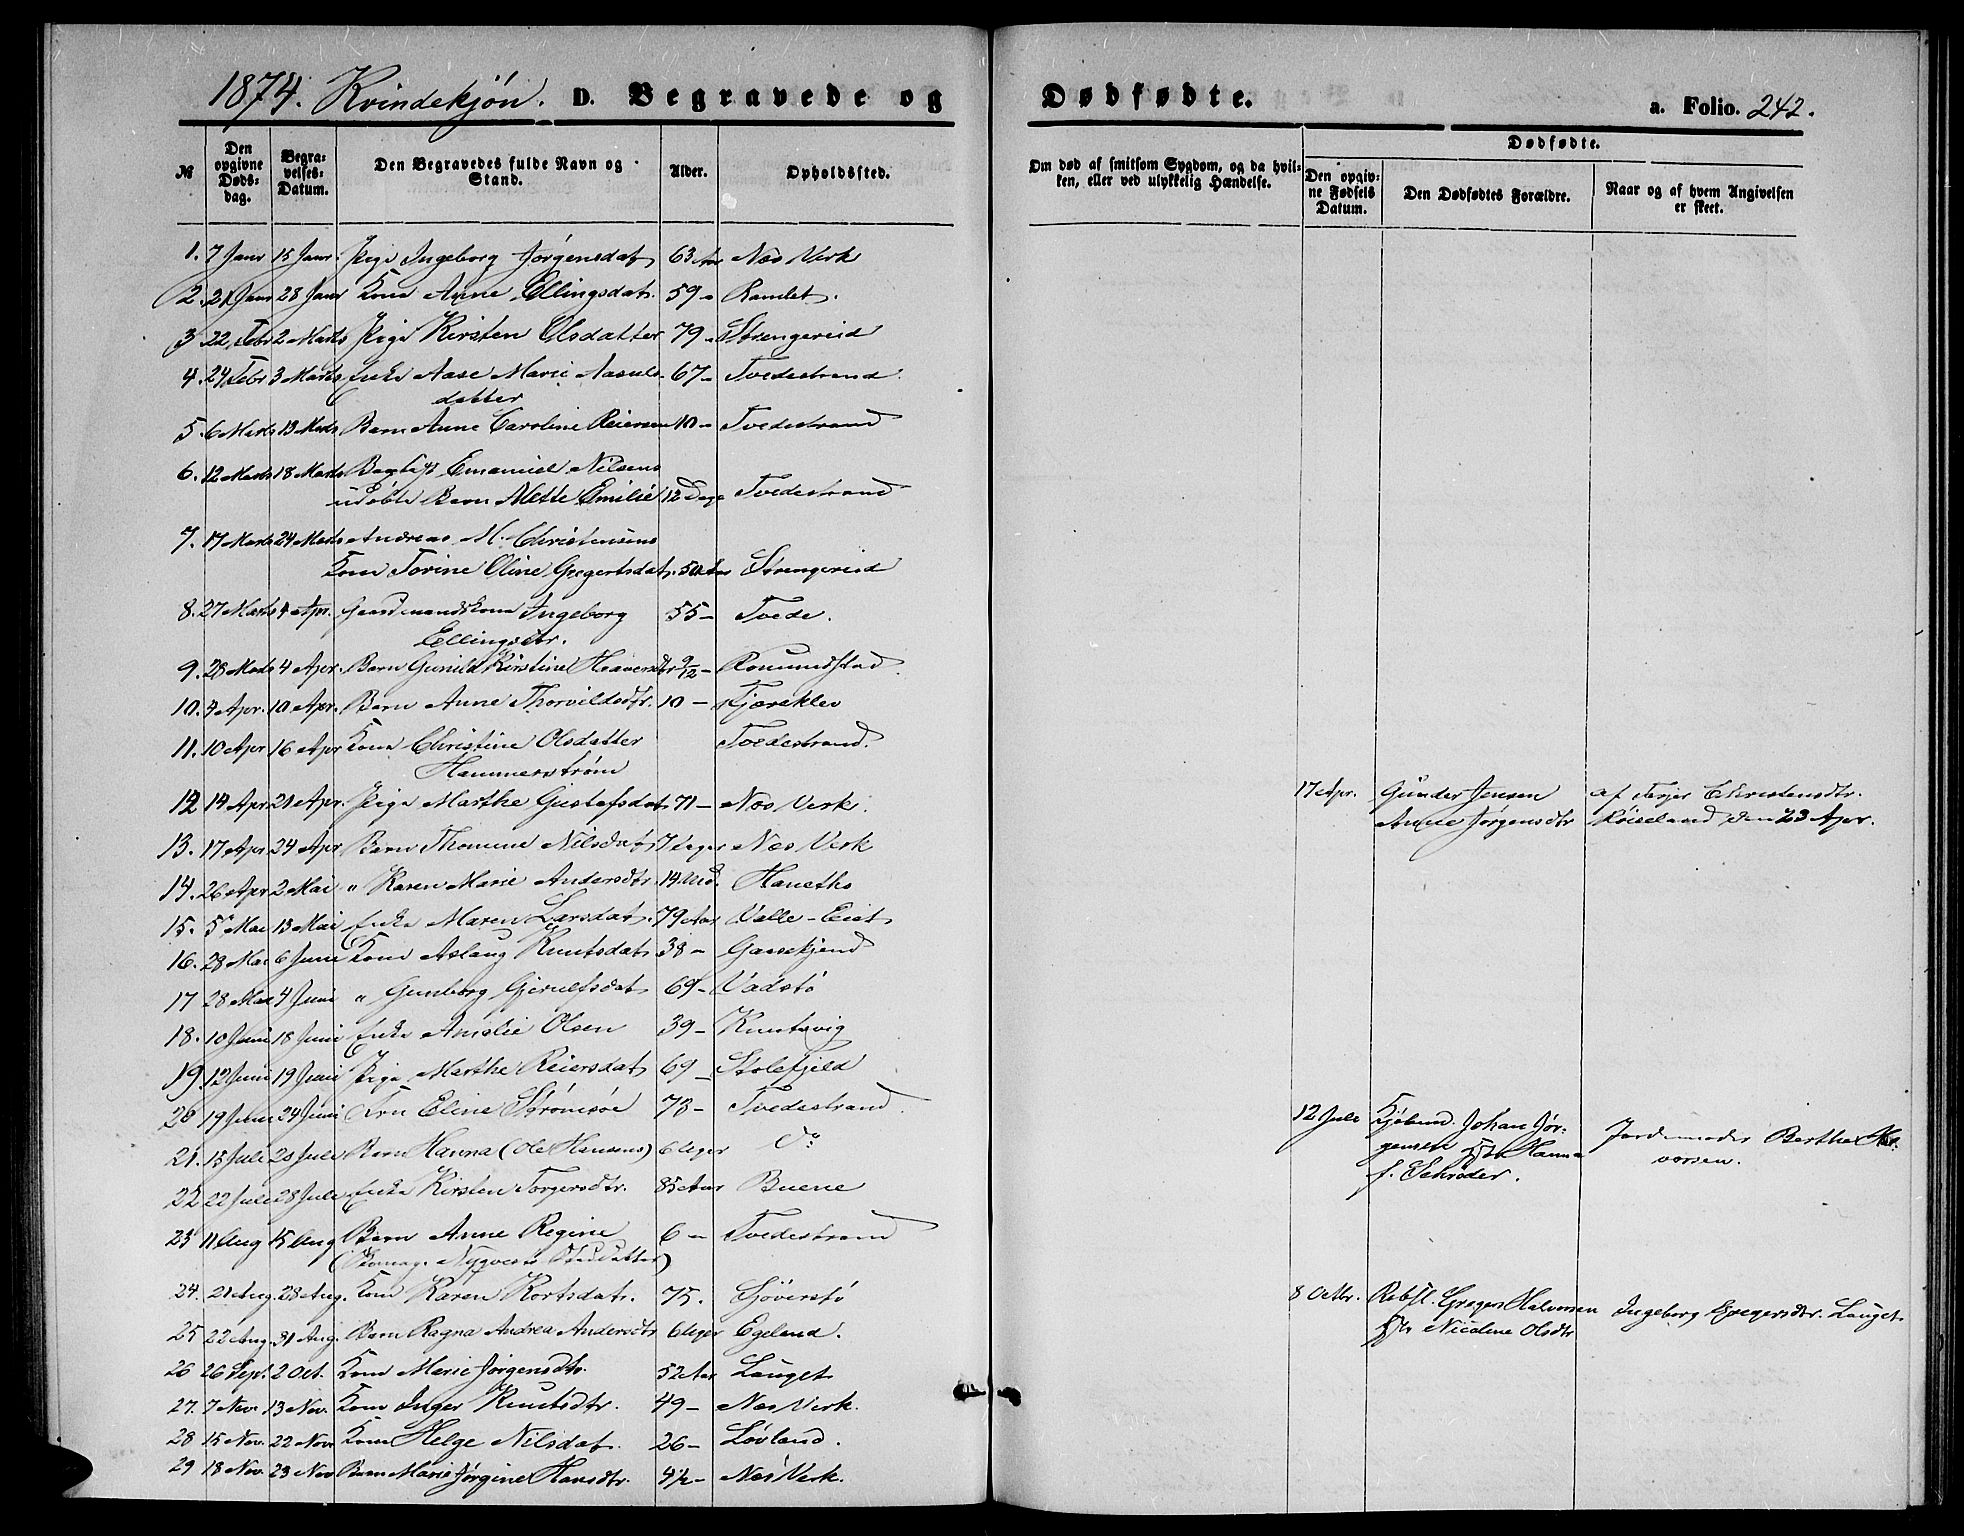 1874. Kvindekjøn. D. Begravede og Dødfødte. a. Folio. 242.
№ Den opgivne Døds-dag. Begra-velses-Datum. Den Begravedes fulde Navn og Stand. Alder. Opholdssted. Om død af smitsom Sygdom, og da hvil-ken, eller ved ulykkelig Hændelse. Dødfødte. Den opgiv-ne Fødsels Datum. Den Dødfødtes Forældre. Naar og af hvem Angivelsen er skeet.
1. 7 Janr 15 Janr. Pige Ingeborg Jørgensdat 63 Aar Næs Verk
2. 21 Janr 28 Janr Kone Anne Ellingsdat. 59 - Ramlet.
3 22 Febr 2 Marts Pige Kirsten Olsdatter 79 - Strengereid
4. 24 Febr 3 Marts Enke Aase Marie Aasuls- 67 - Tvedestrand
datter
5. 6 Marts 13 Marts Barn Anne Caroline Reiersen 10 - Tvedestrand
6. 12 Marts 18 Marts Emanuel Nilsens
udøbte Barn Mette Emilie 12 Dage Tvedestrand
7. 17 Marts 24 Marts Andreas M. Christensens
Kone Torine Oline Gregertsdat. 50 Aar Strengereid
8. 27 Marts 4 Apr. Gaardmandskone Ingeborg 55 - Tvede.
Ellingsdtr.
9. 28 Marts 4 Apr. Barn Gunild Kirstine Haaversdtr 9/12 - Romundstad
10. 4 Apr. 10 Apr. Barn Anne Thorvildsdtr. 10 - Kjæreklev
11. 10 Apr 16 Apr Kone Christine Olsdatter Tvedestrand.
Hammerstrøm
12 14 Apr 21 Apr. Pige Marthe Gustafsdat 71 - Næs Verk. 17 Apr. Gunder Jensen af Terjer Christensdtr.
Anne Jørgensdtr Røiseland den 23 Apr.
13. 17 Apr 24 Apr Barn Thomine Nilsdat 7 Uger Næs Verk
14. 26 Apr 2 Mai " Karen Marie Andersdtr. 14 Md. Hanetho
15. 5 Mai 13 Mai Enke Maren Larsdat. 79 Aar Valle-Eiet
16. 28 Mai 6 Juni Kone Aslaug Knutsdat 38 - Gaasekjend
17 28 Mai 4 Juni " Gunborg Gjerulfsdat 69 - Vadstø
18. 10 Juni 18 Juni Enke Amalie Olsen 39 - Knutsvig
19. 12 Juni 19 Juni Pige Marthe Reiersdat 69 - Stolefjeld
20 19 Juni 24 Juni Fru Eline Strømsøe 78 - Tvedestrand. 12 Juli Kjøbmd. Johan Jør- Jordemoder Berthe Hal-
gensen Hanna vorsen.
f. Schrøder.
21. 13 Juli 20 Juli Barn Hanna (Ole Hansens) 6 Uger Do
22 22 Juli 28 Juli Enke Kirsten Torgersdtr. 85 Aar Buene
23 11 Aug 15 Aug Barn Anne Regine 6 - Tvedestrand
(Skomag. Nyqvists )
24. 21 Aug. 28 Aug. Kone Karen Kortsdat. 75. Sjöverstø 8 Octbr. Gregers Halvorsen Ingeborg Gregersdtr. Lauget
Nicoline Olsdtr
25 22 Aug. 31 Aug. Barn Ragna Andrea Andersdtr 6 Uger Egeland.
26 26 Sept. 2 Oct. Kone Marie Jørgensdtr. 52 Aar Lauget
27. 7 Nov. 13 Nov. Kone Inger Knutsdtr. 49 - Næs Verk.
28 15 Nov. 22 Nov. Kone Helge Nilsdat. 26 - Løvland.
29 18 Nov. 23 Nov Barn Marie Jørgine Hansdtr. 4 1/2 - Næs Verk.